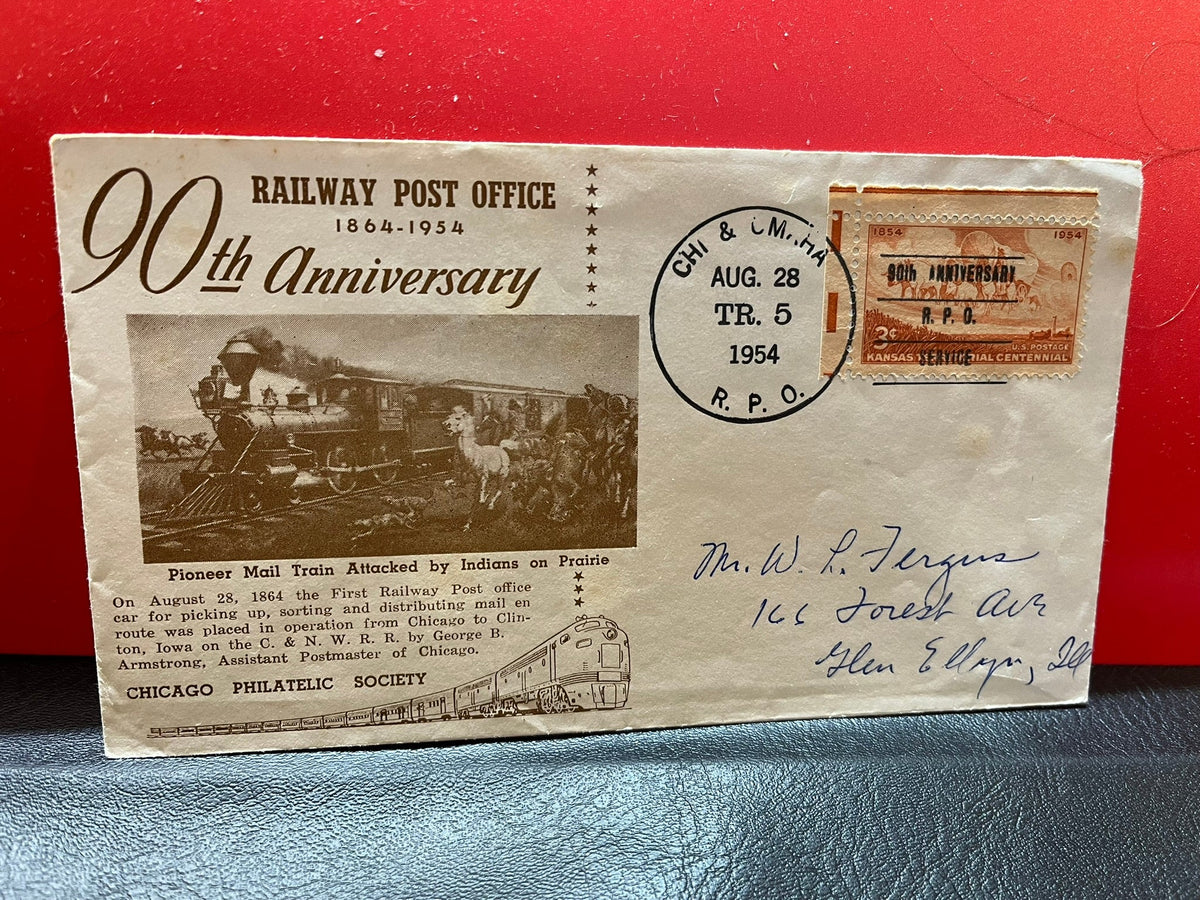 RAILWAY POST OFFICE
1864-1954
90th Anniversary
Pioneer Mail Train Attacked by Indians on Prairie
On August 28, 1864 the First Railway Post office
car for picking up, sorting and distributing mail en
route was placed in operation from Chicago to Clin-
ton, Iowa on the C. & N. W. R. R. by George B.
Armstrong, Assistant Postmaster of Chicago.
CHICAGO PHILATELIC SOCIETY
CHI & OMAHA
AUG. 28
TR. 5
1954
R. P. O.
1854 1954
90th ANNIVERSARY
R. P. O.
SERVICE
3¢ U.S. POSTAGE
KANSAS CENTENNIAL
Mr. W. L. Fergus
166 Forest Ave
Glen Ellyn, Ill